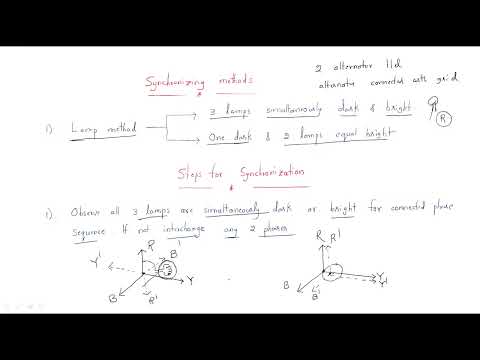 Synchronizing methods
2 alternator llel
alternator connected with grid
3 lamps simultaneously dark & bright
R
1) Lamp method
One dark & 2 lamps equal bright
Steps for Synchronization
1). Observe all 3 lamps are simultaneously dark or bright for connected phase
sequence If not interchange any 2 phases
Y' R B' R R'
Y Y
B R' B B' Y'